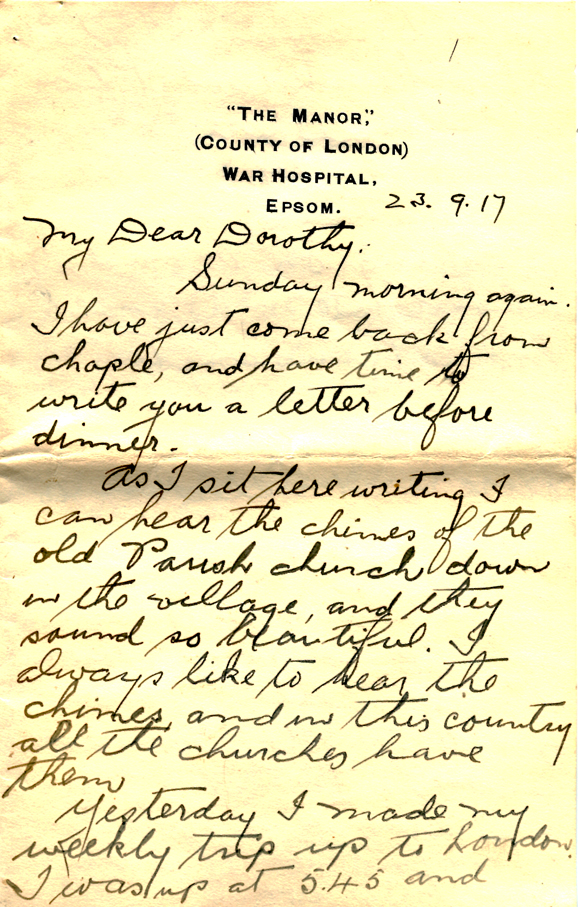 "THE MANOR,"
(COUNTY OF LONDON)
WAR HOSPITAL,
EPSOM. 23. 9. 17
My Dear Dorothy.
Sunday morning again.
I have just come back from
chaple, and have time to
write you a letter before
dinner.
As I sit here writing I
can hear the chimes of the
old Parish church down
in the village, and they
sound so beautiful. I
always like to hear the
chimes, and in this country
all the churches have
them
Yesterday I made my
weekly trip up to London.
I was up at 5.45 and